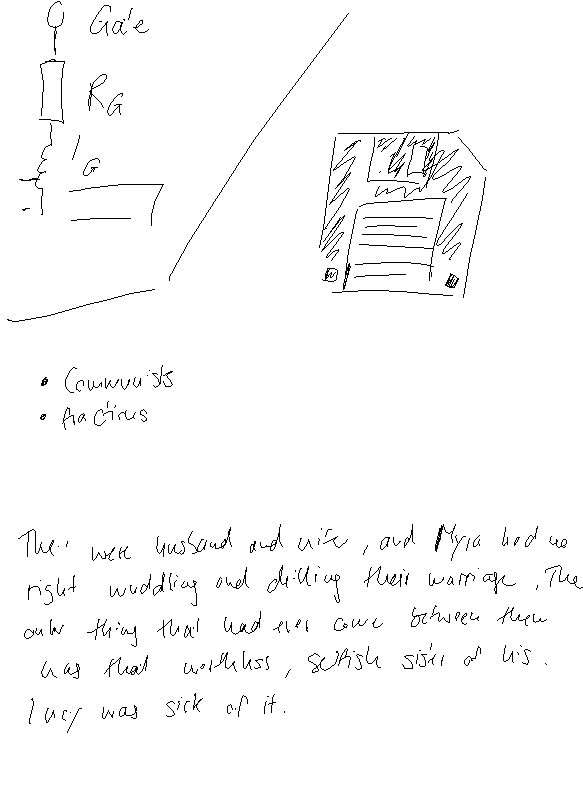 Gate
R_G
G
• Communists
• fractions
They were husband and wife, and Myra had no
right muddling and drilling their marriage. The
only thing that had ever come between them
was that worthless, selfish sister of his.
Lucy was sick of it.